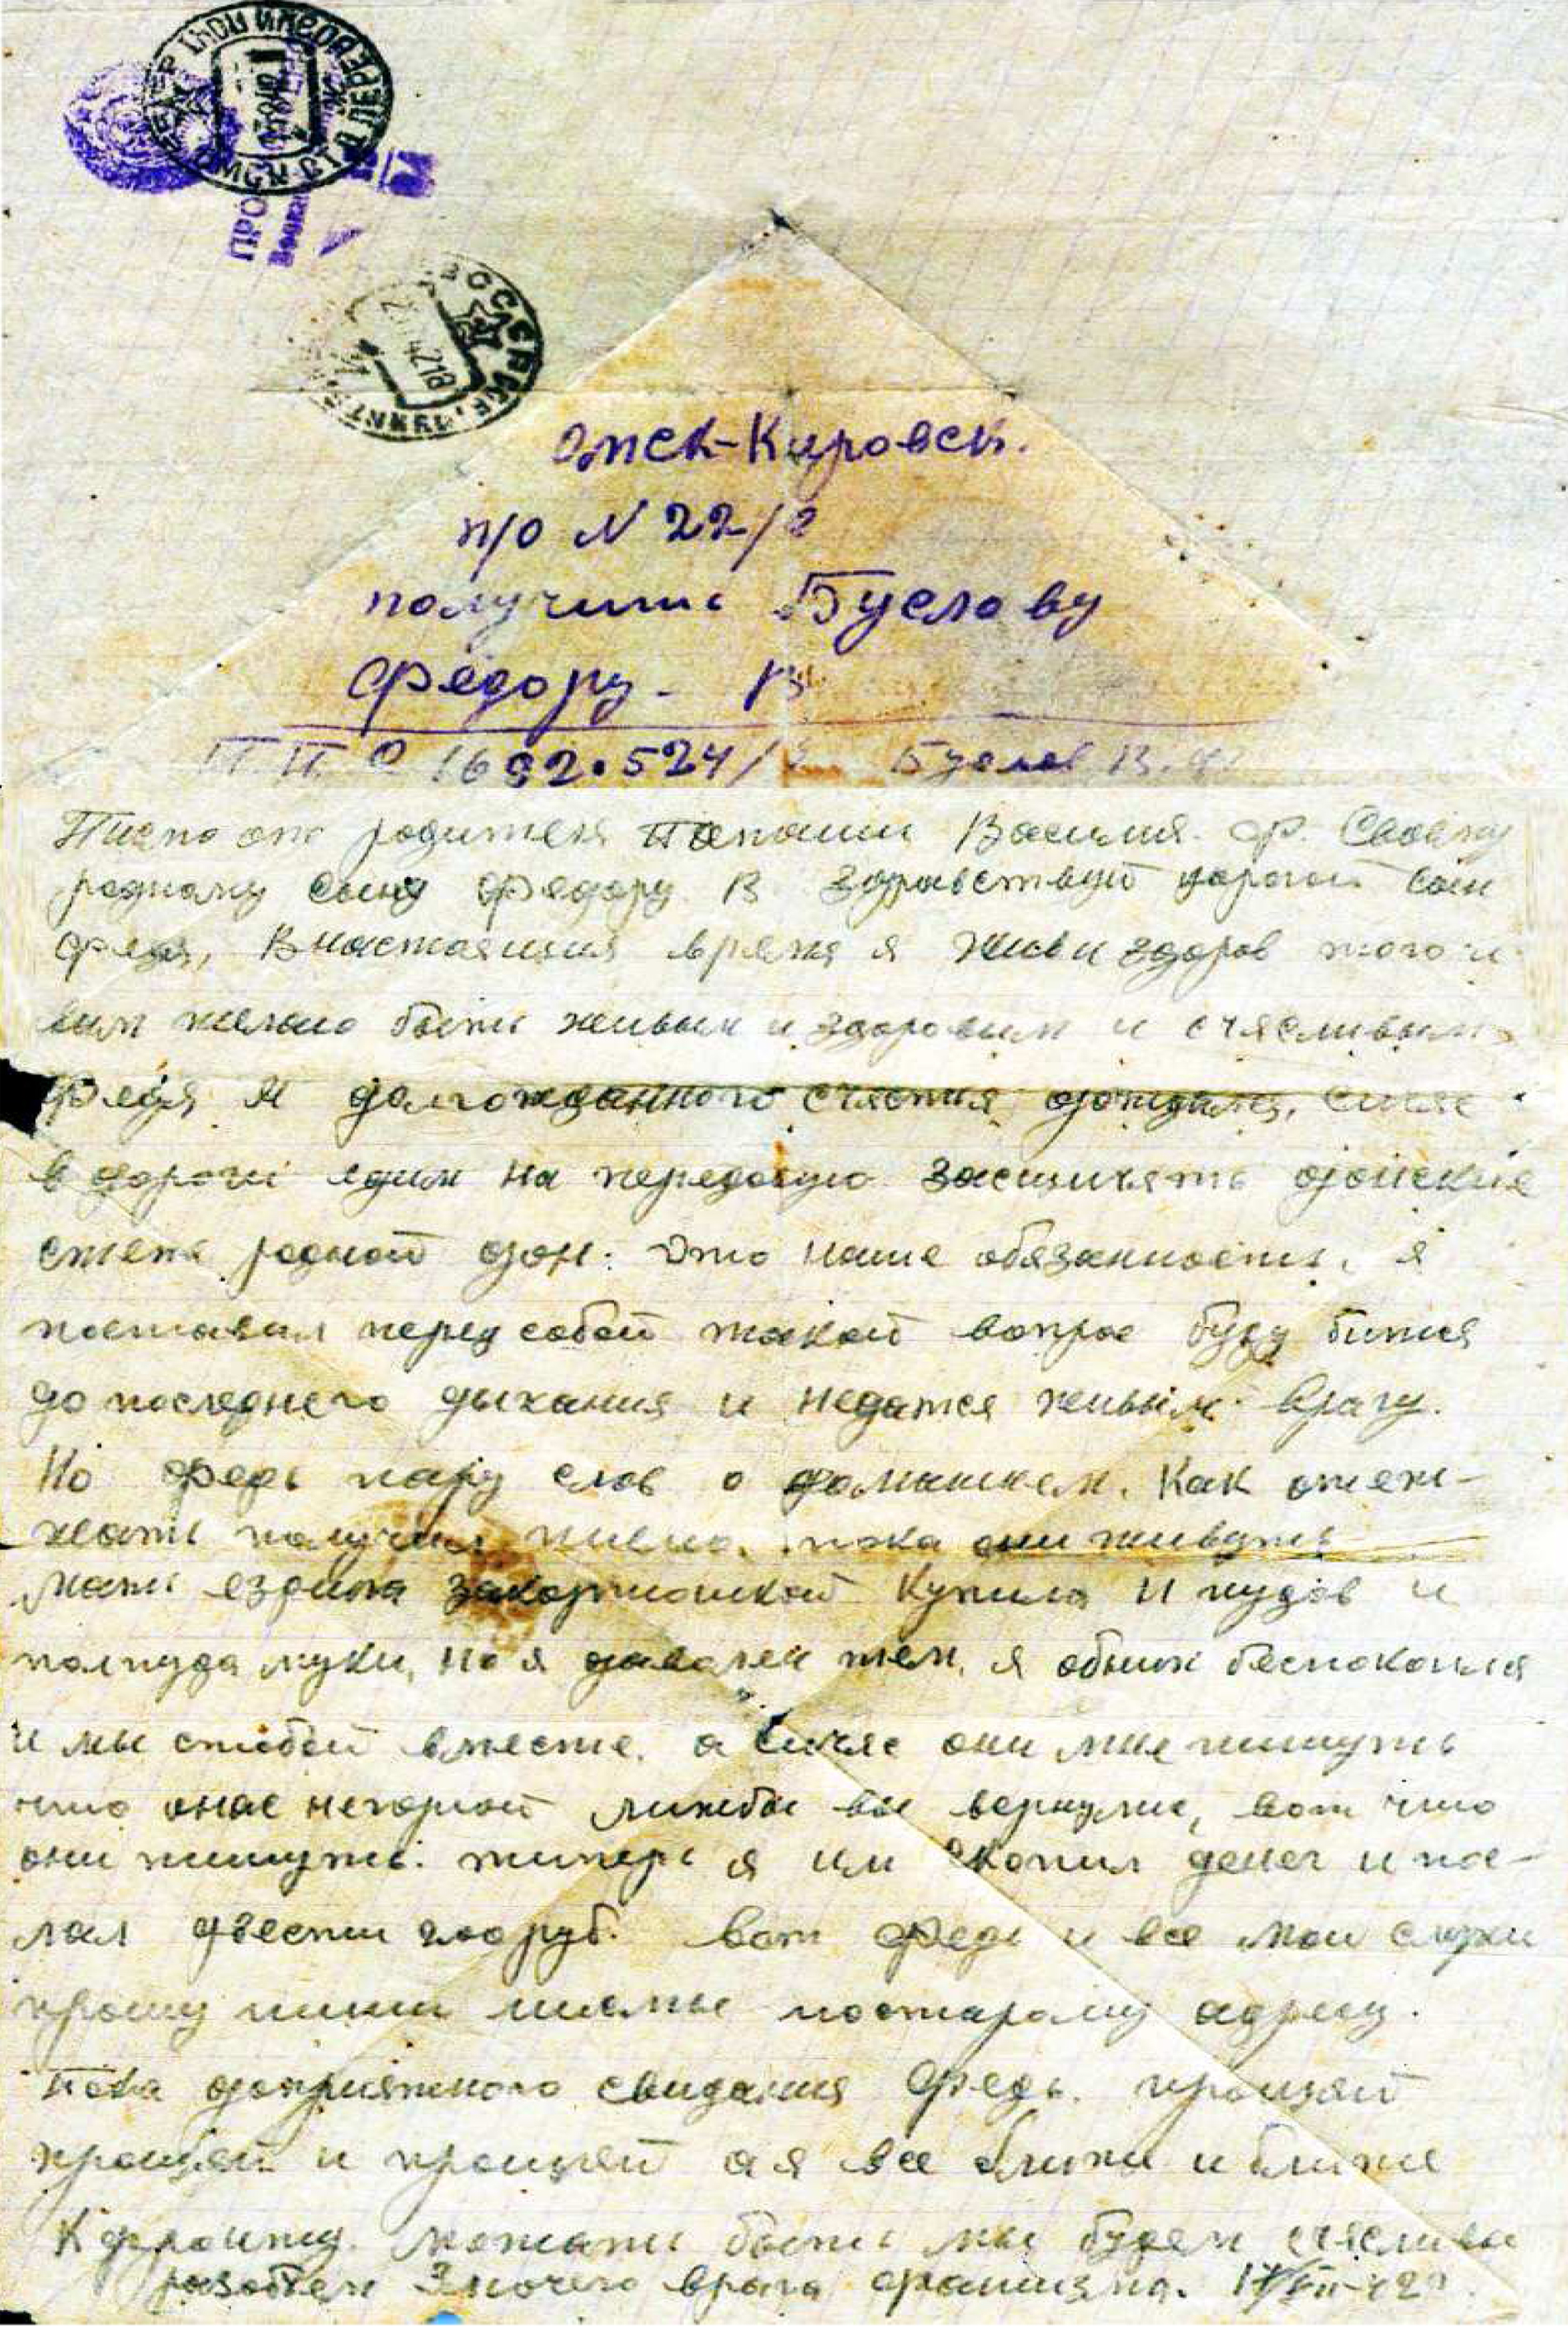 ПРО
Омск-Кировск.
п/о N 22/2
получить Буслову
Федору - В
П П С 1692•524/ Буслов В.
Писмо от родителя Папаши Василия Ф. Своему
родному сыну Федору В здравствуй дорогой сын
Федя, В настоящия время я жив и здоров того и
вам желаю быть живым и здоровым и счясливым
Федя я долгожданного счястия дождался, сичяс
в дороги едим на передовую засщищять донские
степи родной дон. Это наше обязанность, я
поставил перед собой такой вопрос буду битця
до последнего дыхания и недатся живым врагу.
Но Федь пару слов о домашнем. Как
получил писмо. пока они живуть
мать ездила закартошкой купила 11 пудов и
полпуда муки, но я доволен тем, я обних беспокоился
и мы стобой вместе. а сичяс они мне пишуть
что онас негорюй лижбы вы вернулис, вот что
они пишуть. типерь я им скопил денег и по-
лал двести 200 руб. вот Федь и все мои слухи
прошу пиши писмы постарому адресу.
Пока доприятного свидания Федь. прощяй
прощяй и прощяй а я все ближи и ближе
К фронту. можать быть мы будем счясливы
разобьем врага фашизма. 17/VII-42